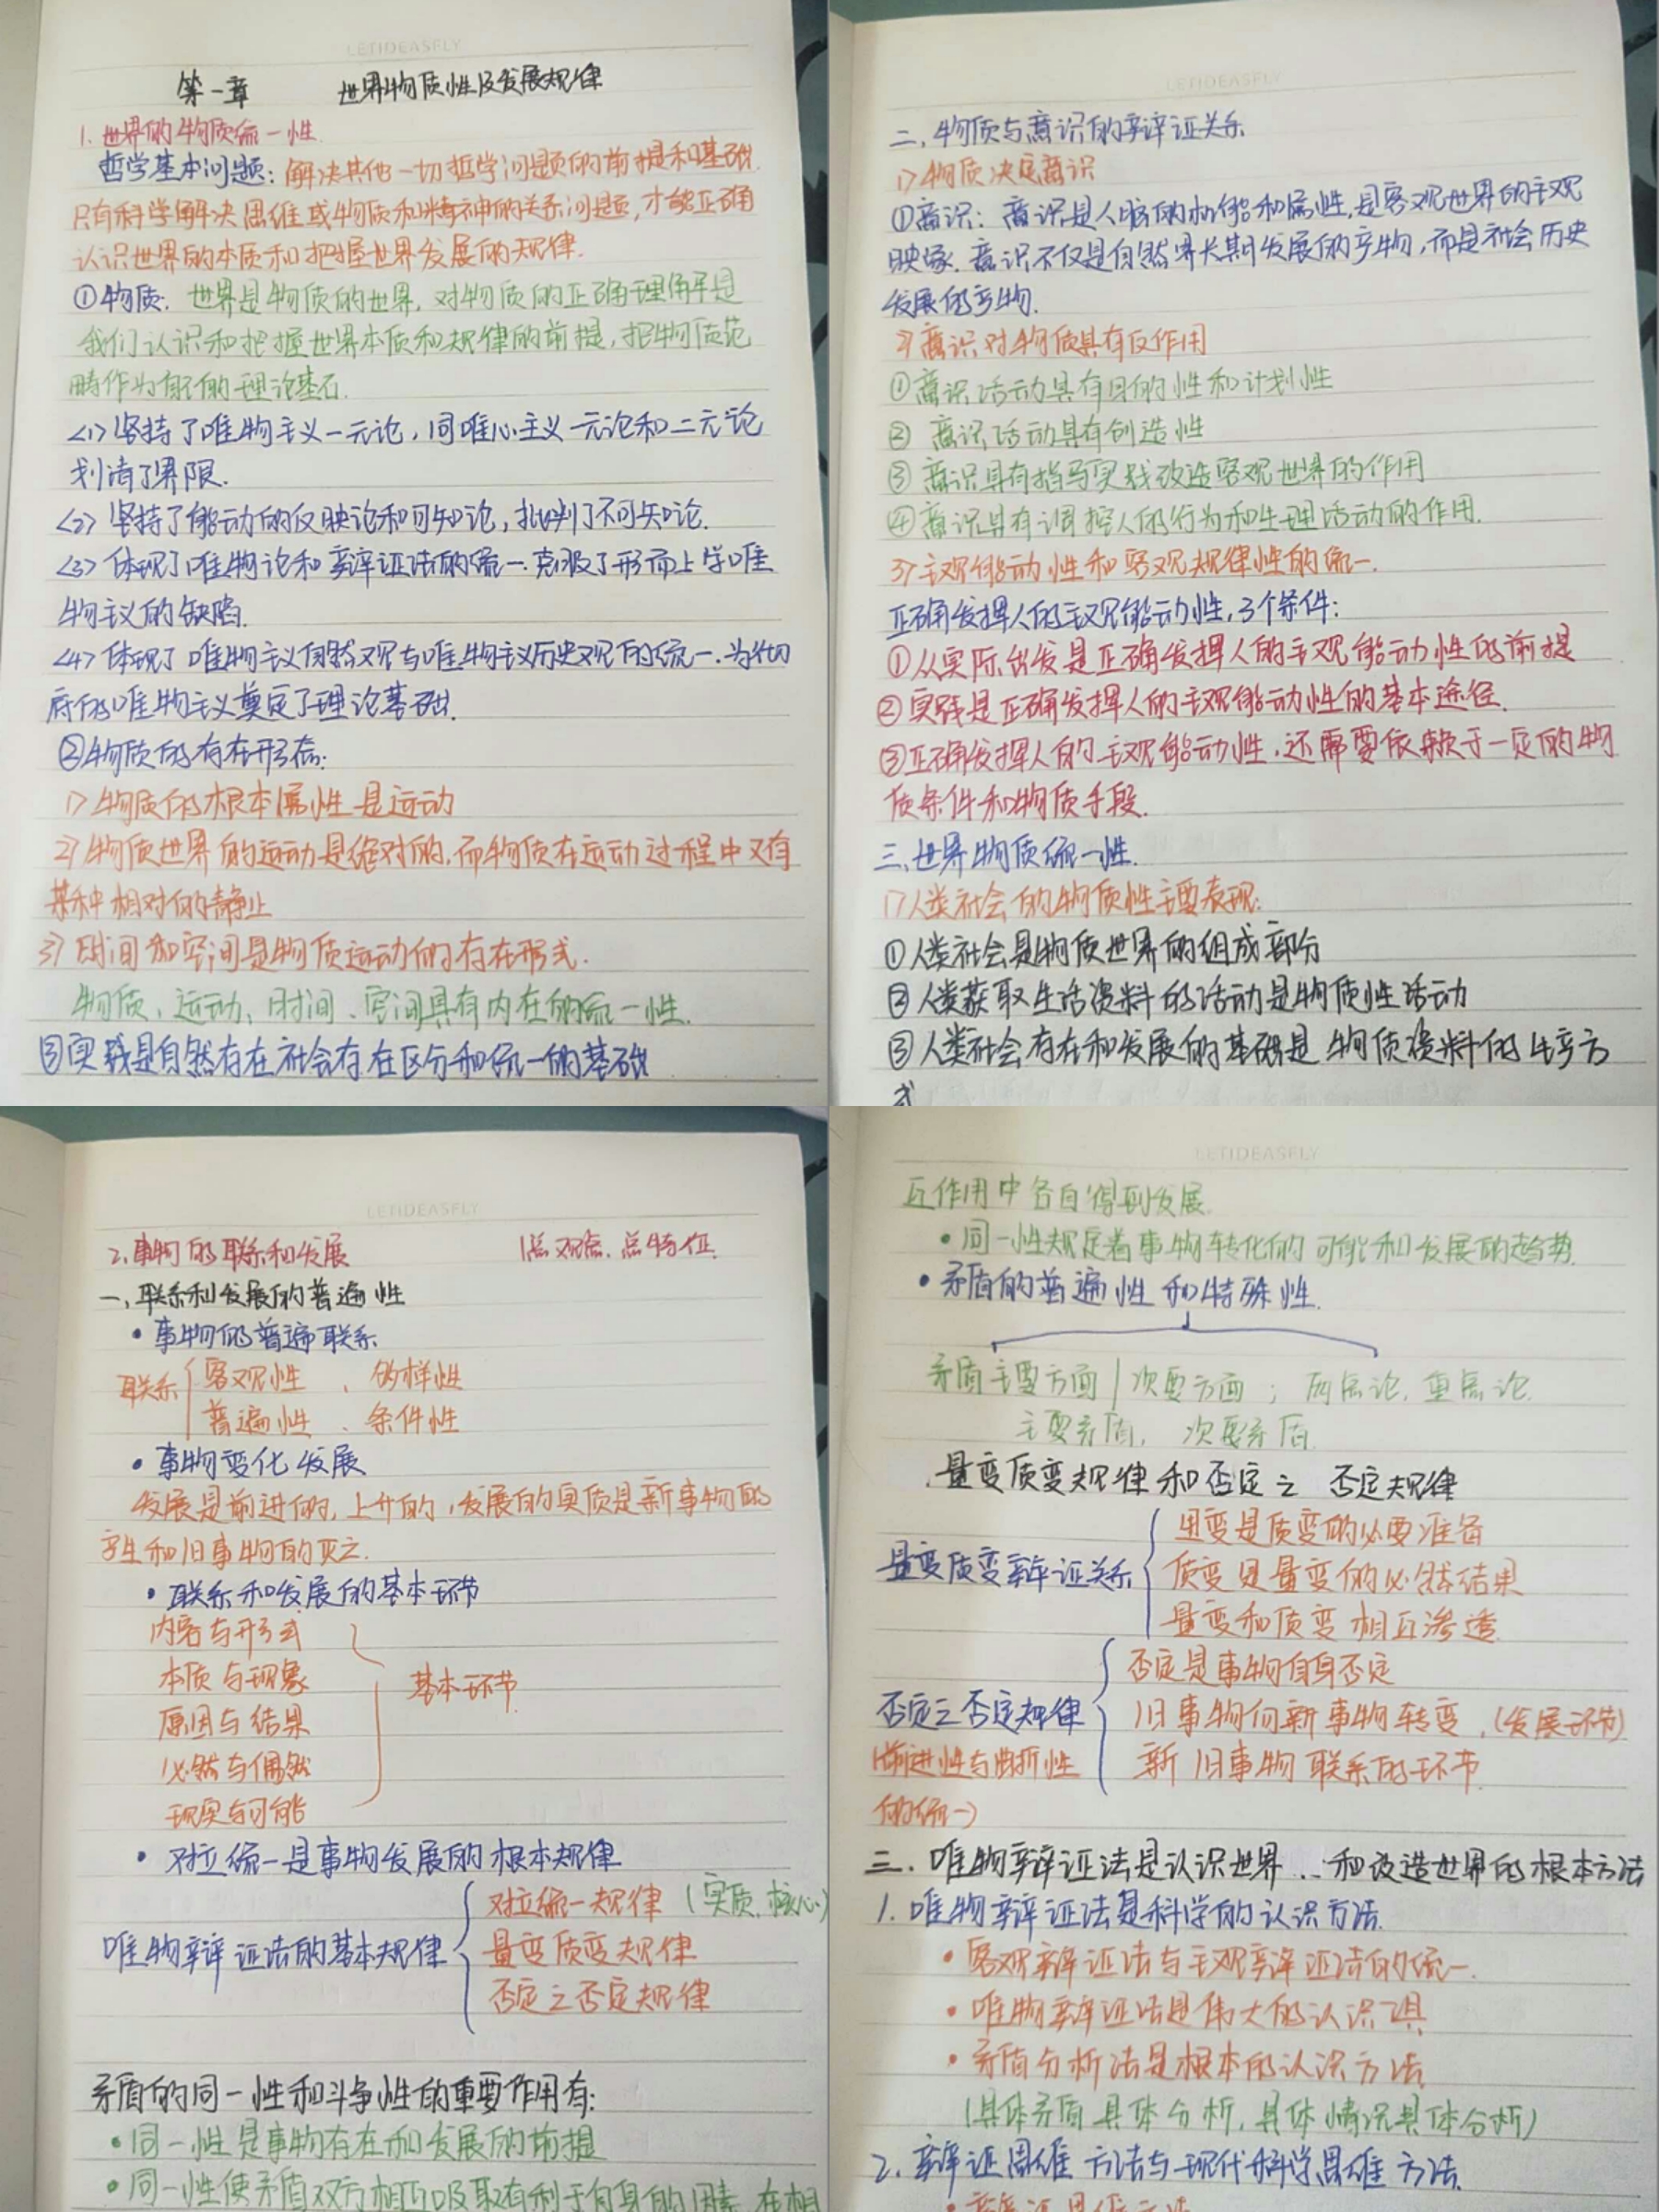 LETIDEASFLY
第一章 世界物质性及发展规律
1.世界的物质统一性
哲学基本问题：解决其他一切哲学问题的前提和基础.
只有科学解决思维或物质和精神的关系问题，才能正确
认识世界的本质和把握世界发展的规律.
①物质：世界是物质的世界，对物质的正确理解是
我们认识和把握世界本质和规律的前提，把物质范
畴作为自己的理论基石.
<1>坚持了唯物主义一元论，同唯心主义一元论和二元论
划清了界限.
<2>坚持了能动的反映论和可知论，批判了不可知论.
<3>体现了唯物论和辩证法的统一.克服了形而上学唯
物主义的缺陷.
<4>体现了唯物主义自然观与唯物主义历史观的统一.为彻
底的唯物主义奠定了理论基础.
②物质的存在形态:
1>物质的根本属性是运动
2>物质世界的运动是绝对的,而物质在运动过程中又有
某种相对的静止
3>时间和空间是物质运动的存在形式.
物质、运动、时间、空间具有内在的统一性.
③实践是自然存在社会存在区分和统一的基础
LETIDEASFLY
二、物质与意识的辩证关系
1>物质决定意识
①意识：意识是人脑的机能和属性,是客观世界的主观
映象.意识不仅是自然界长期发展的产物,而是社会历史
发展的产物.
2>意识对物质具有反作用
①意识活动具有目的性和计划性
② 意识活动具有创造性
③意识具有指导实践改造客观世界的作用
④意识具有调控人的行为和生理活动的作用.
3>主观能动性和客观规律性的统一.
正确发挥人的主观能动性,3个条件:
①从实际出发是正确发挥人的主观能动性的前提
②实践是正确发挥人的主观能动性的基本途径.
③正确发挥人的主观能动性,还需要依赖于一定的物
质条件和物质手段.
三、世界物质统一性.
1>人类社会的物质性主要表现:
①人类社会是物质世界的组成部分
②人类获取生活资料的活动是物质性活动
③人类社会存在和发展的基础是物质资料的生产方
式
LETIDEASFLY
2.事物的联系和发展 总观点.总特征.
一、联系和发展的普遍性
•事物的普遍联系
联系 客观性 、多样性
普遍性 、条件性
•事物变化发展
发展是前进的,上升的,发展的实质是新事物的
产生和旧事物的灭亡.
•联系和发展的基本环节
内容与形式
本质与现象 基本环节
原因与结果
必然与偶然
现实与可能
•对立统一是事物发展的根本规律
唯物辩证法的基本规律
对立统一规律 (实质.核心)
量变质变规律
否定之否定规律
矛盾的同一性和斗争性的重要作用有:
•同一性是事物存在和发展的前提
•同一性使矛盾双方相互吸取有利于自身的因素,在相
LETIDEASFLY
互作用中各自得到发展.
•同一性规定着事物转化的可能和发展的趋势.
•矛盾的普遍性和特殊性.
矛盾主要方面/次要方面；两点论,重点论.
主要矛盾, 次要矛盾.
量变质变规律和否定之否定规律
量变质变辩证关系
量变是质变的必要准备
质变是量变的必然结果
量变和质变相互渗透
否定之否定规律
(前进性与曲折性
的统一)
否定是事物自身否定
旧事物向新事物转变.(发展环节)
新旧事物联系的环节
三.唯物辩证法是认识世界..和改造世界的根本方法
1.唯物辩证法是科学的认识方法.
•客观辩证法与主观辩证法的统一.
•唯物辩证法是伟大的认识工具
•矛盾分析法是根本的认识方法
(具体矛盾具体分析,具体情况具体分析)
2.辩证思维方法与现代科学思维方法.
•辩证思维方法